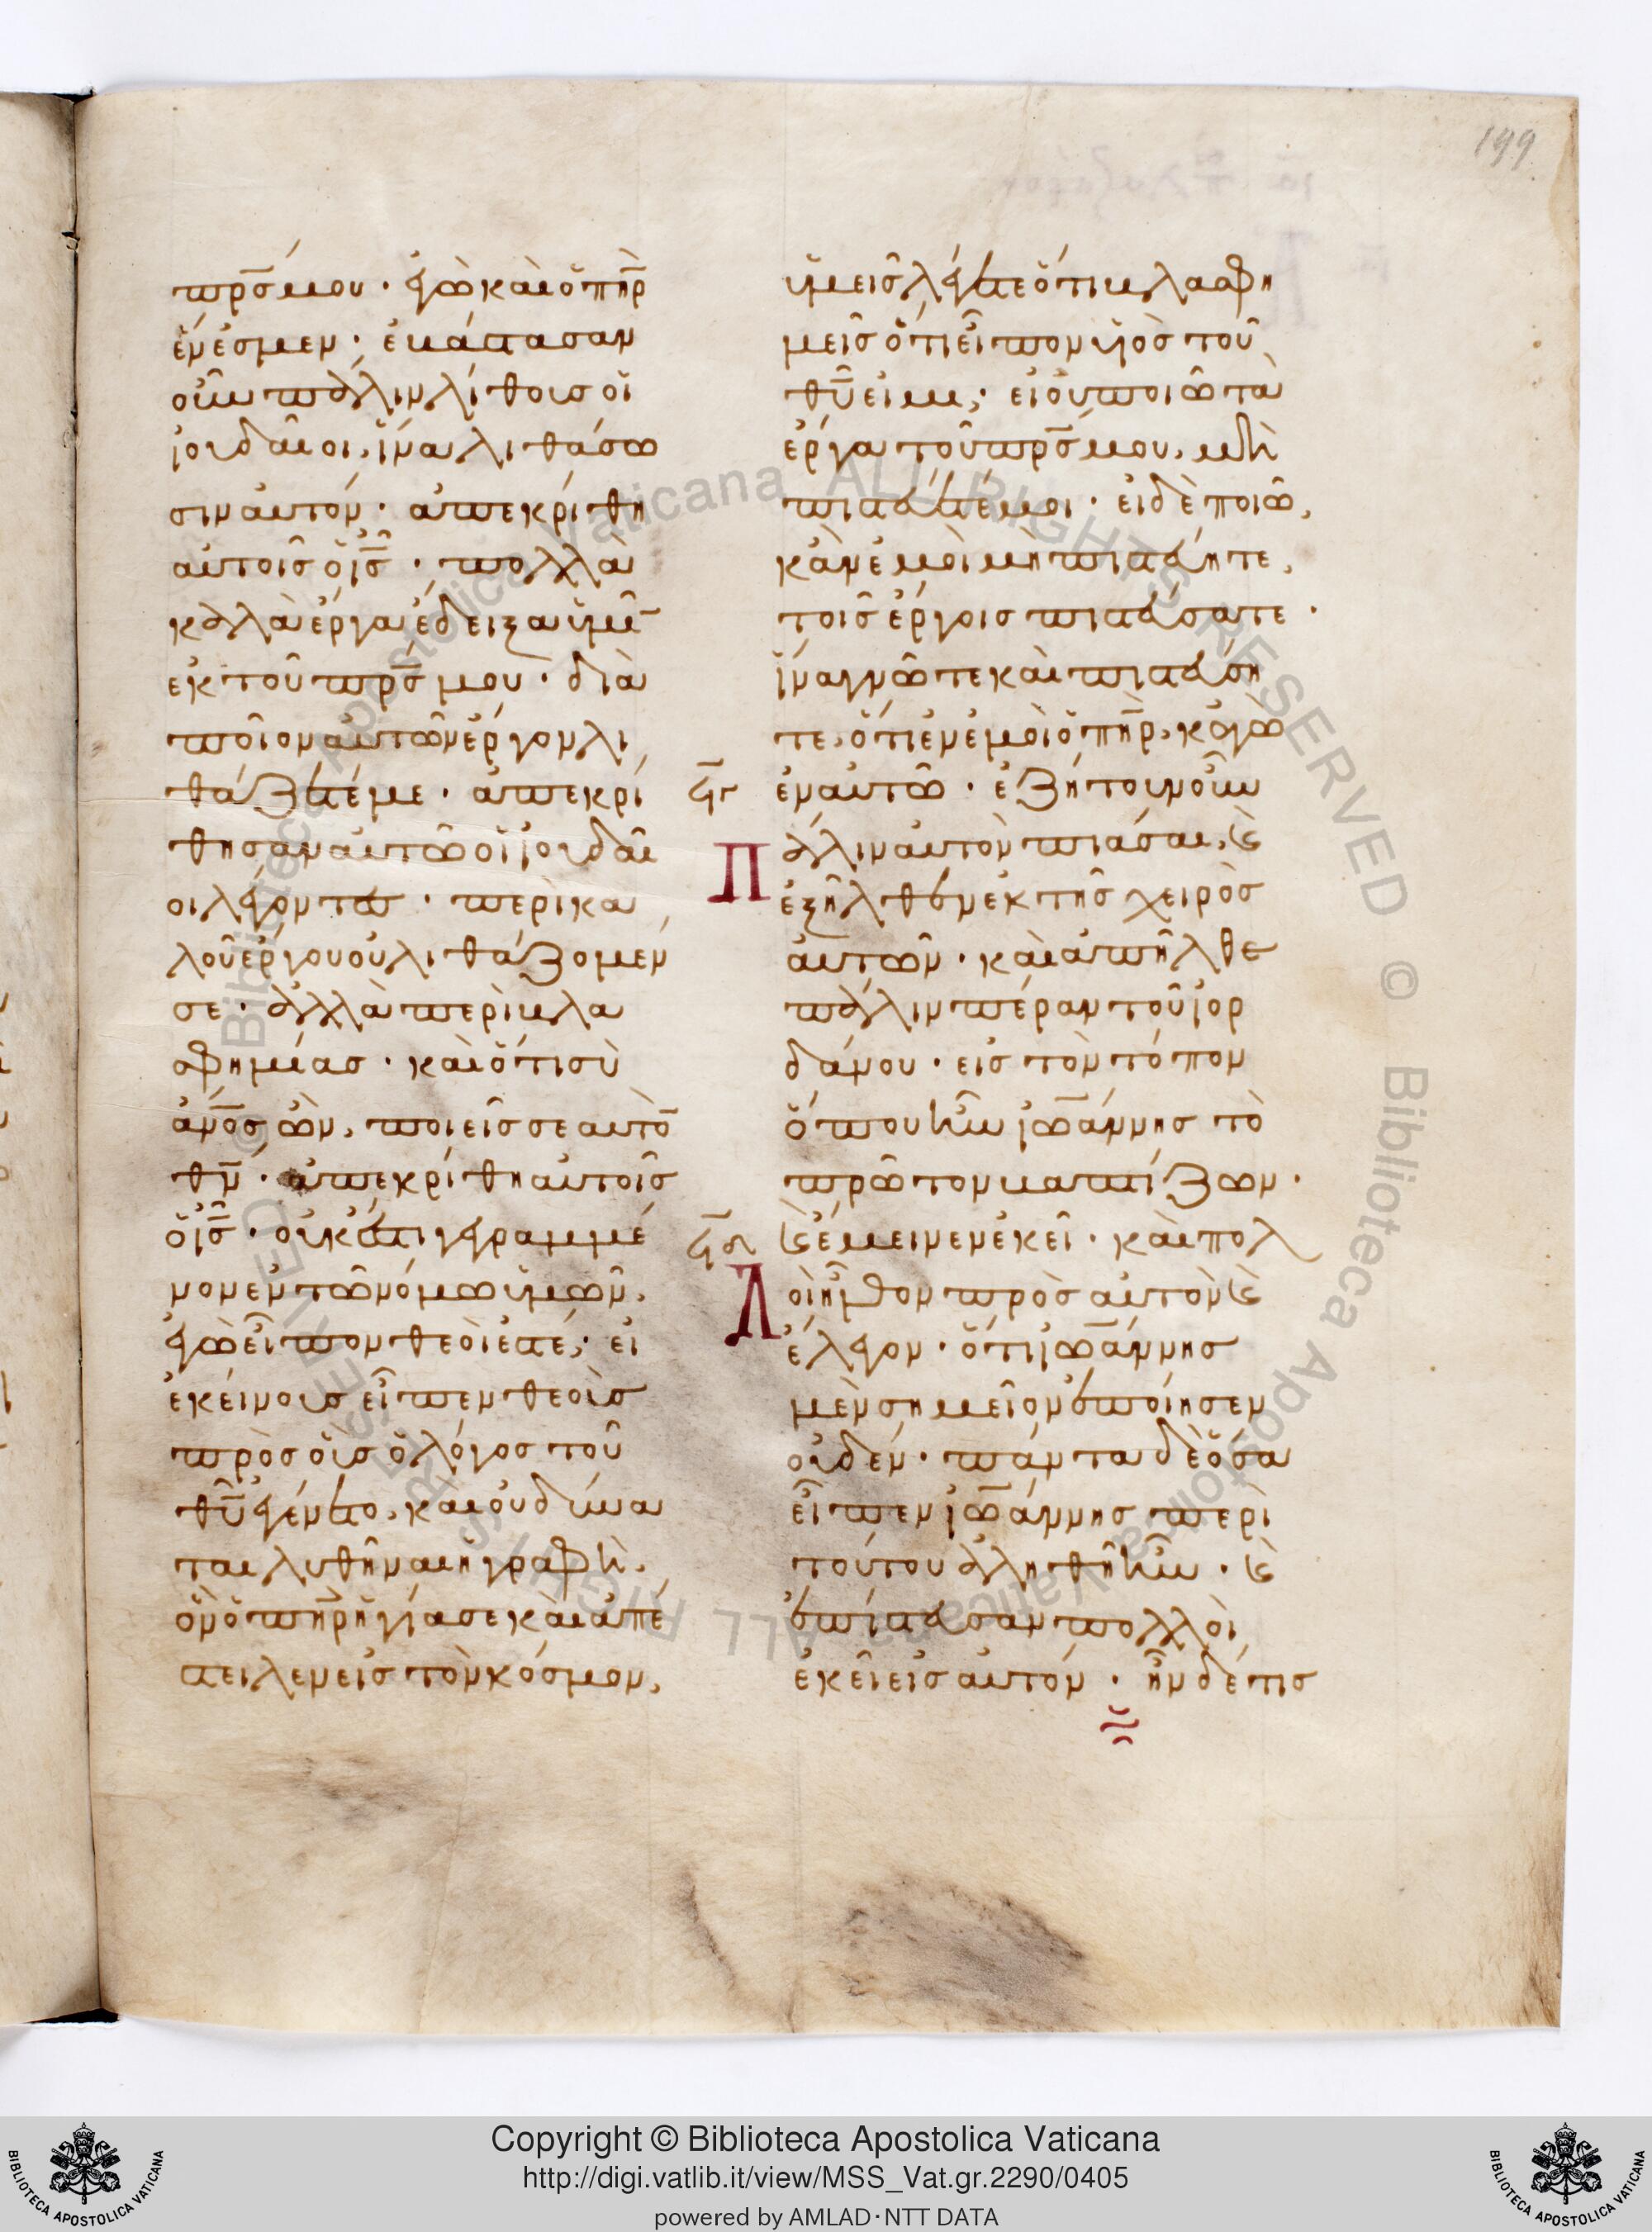 199
πρ̅σ μου · ἐγὼ καὶ ὁ πη̅ρ
ἕν ἐσμεν · ἐβάστασαν
οὖν πάλιν λίθους οἱ
ἰουδαῖοι, ἵνα λιθάσω
σιν αὐτόν · ἀπεκρίθη
αὐτοῖς ὁ ι̅ς · πολλὰ
καλὰ ἔργα ἔδειξα ὑμῖ̅
ἐκ τοῦ πρ̅ς μου · διὰ
ποῖον αὐτῶν ἔργον λι
θάζετέ με · ἀπεκρί
θησαν αὐτῶ οἱ ἰουδαῖ
οι λέγοντες · περὶ κα
λοῦ ἔργου οὐ λιθάζομέν
σε · ἀλλὰ περὶ βλα
σφημίας · καὶ ὅτι σὺ
α̅νο̅ς ὢν, ποιεῖς σεαυτὸ̅
θ̅ν · ἀπεκρίθη αὐτοῖς
ὁ ι̅ς · οὐκ ἔστι γεγραμμέ
νον ἐν τῶ νόμω ὑμῶν,
ἐγὼ εἶπον θεοί ἐστέ, · εἰ
ἐκείνους εἶπεν θεοὺς
πρὸς οὓς ὁ λόγος τοῦ
θ̅υ ἐγένετο, καὶ οὐ δύνα
ται λυθῆναι ἡ γραφὴ,
ὃν ὁ πη̅ρ ἡγίασε καὶ ἀπέ
στειλεν εἰς τὸν κόσμον,
ὑμεῖς λέγετε ὅτι βλασφη
μεῖς ὅτι εἶπον υἱὸς τοῦ
θ̅υ εἰμι, · εἰ οὐ ποιῶ τὰ
ἔργα τοῦ πρ̅ς μου, μὴ
πιστεύετέ μοι · εἰ δὲ ποιῶ,
κἂν ἐμοὶ μὴ πιστεύητε,
τοῖς ἔργοις πιστεύσατε ·
ἵνα γνῶτε καὶ πιστεύση
τε, ὅτι ἐν ἐμοὶ ὁ πη̅ρ, κἀγὼ
ϟ̅γ ἐν αὐτῶ · ἐζήτουν οὖν
Πάλιν αὐτὸν πιάσαι, ϗ
ἐξῆλθεν ἐκ τῆς χειρὸς
αὐτῶν · καὶ ἀπῆλθε
πάλιν πέραν τοῦ ἰορ
δάνου · εἰς τὸν τόπον
ὅπου ἦν ἰω̅άννης τὸ
πρῶτον βαπτίζων ·
ϟ̅δ ϗ ἔμεινεν ἐκεῖ · καὶ πολ
Λοὶ ἦλθον πρὸς αὐτὸν ϗ
ἔλεγον · ὅτι ἰω̅άννης
μὲν σημεῖον ἐποίησεν
οὐδέν · πάντα δὲ ὅσα
εἶπεν ἰω̅άννης περὶ
τούτου ἀληθῆ ἦν · ϗ
ἐπίστευσαν πολλοὶ
ἐκεῖ εἰς αὐτόν · ἦν δέ τις
Copyright © Biblioteca Apostolica Vaticana
http://digi.vatlib.it/view/MSS_Vat.gr.2290/0405
powered by AMLAD·NTT DATA
BIBLIOTECA APOSTOLICA VATICANA
BIBLIOTECA APOSTOLICA VATICANA
© Biblioteca Apostolica Vaticana ALL RIGHTS RESERVED
© Biblioteca Apostolica Vaticana ALL RIGHTS RESERVED